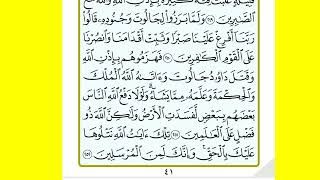 قَلِيلَةٍ غَلَبَتْ فِئَةً كَثِيرَةً بِإِذْنِ ٱللَّهِ وَٱللَّهُ مَعَ
ٱلصَّٰبِرِينَ ٢٤٩ وَلَمَّا بَرَزُوا۟ لِجَالُوتَ وَجُنُودِهِۦ قَالُوا۟
رَبَّنَآ أَفْرِغْ عَلَيْنَا صَبْرًا وَثَبِّتْ أَقْدَامَنَا وَٱنصُرْنَا
عَلَى ٱلْقَوْمِ ٱلْكَٰفِرِينَ ٢٥٠ فَهَزَمُوهُم بِإِذْنِ ٱللَّهِ
وَقَتَلَ دَاوُۥدُ جَالُوتَ وَءَاتَىٰهُ ٱللَّهُ ٱلْمُلْكَ
وَٱلْحِكْمَةَ وَعَلَّمَهُۥ مِمَّا يَشَآءُ وَلَوْلَا دَفْعُ ٱللَّهِ ٱلنَّاسَ
بَعْضَهُم بِبَعْضٍ لَّفَسَدَتِ ٱلْأَرْضُ وَلَٰكِنَّ ٱللَّهَ ذُو
فَضْلٍ عَلَى ٱلْعَٰلَمِينَ ٢٥١ تِلْكَ ءَايَٰتُ ٱللَّهِ نَتْلُوهَا
عَلَيْكَ بِٱلْحَقِّ وَإِنَّكَ لَمِنَ ٱلْمُرْسَلِينَ ٢٥٢
٤١